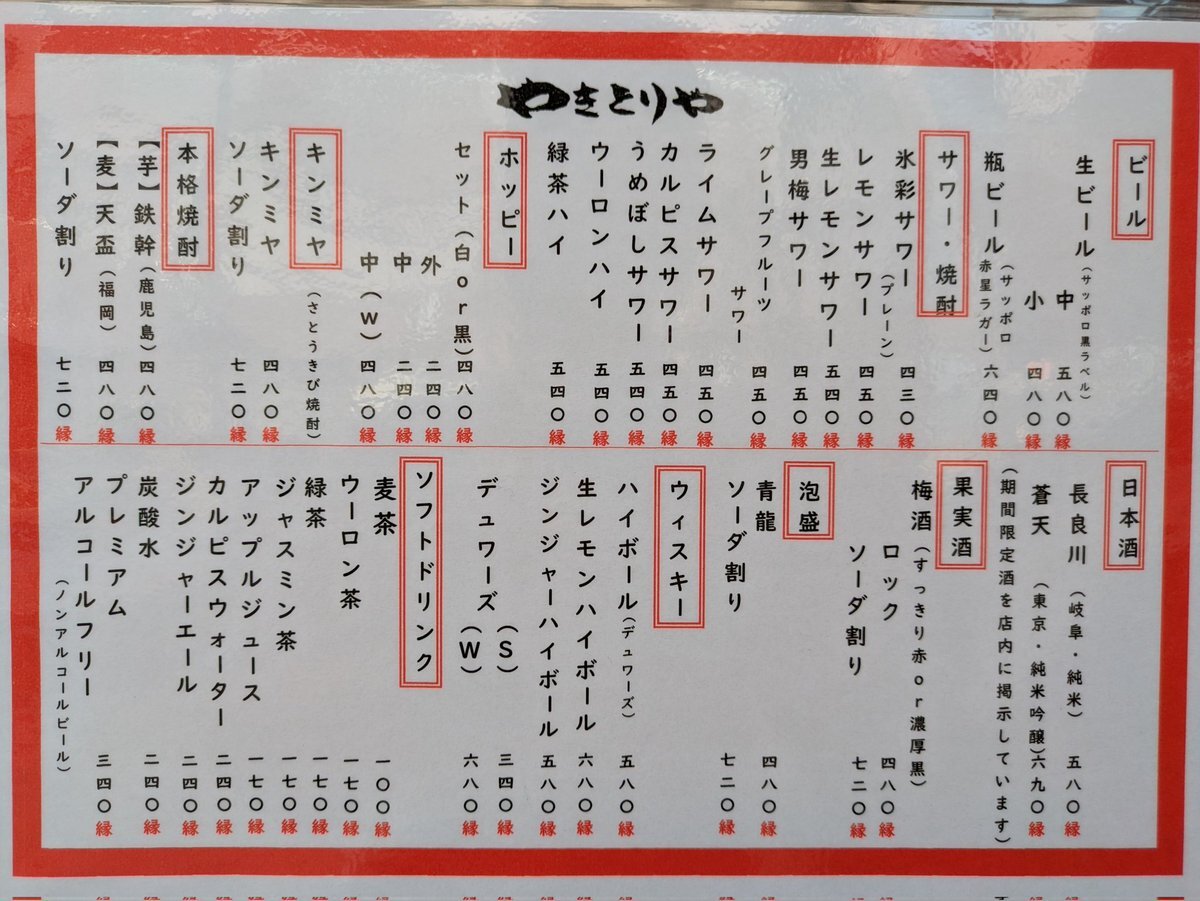 やきとりや
ビール
生ビール(サッポロ黒ラベル)
中 五八〇縁
小 四八〇縁
瓶ビール(サッポロ赤星ラガー) 六四〇縁
サワー・焼酎
氷彩サワー(プレーン) 四三〇縁
レモンサワー 四五〇縁
生レモンサワー 五四〇縁
男梅サワー 四五〇縁
グレープフルーツ
サワー 四五〇縁
ライムサワー 四五〇縁
カルピスサワー 四五〇縁
うめぼしサワー 五四〇縁
ウーロンハイ 五四〇縁
緑茶ハイ 五四〇縁
ホッピー
セット(白or黒) 四八〇縁
外 二四〇縁
中 二四〇縁
中(W) 四八〇縁
キンミヤ
(さとうきび焼酎)
キンミヤ 四八〇縁
ソーダ割り 七二〇縁
本格焼酎
【芋】鉄幹(鹿児島) 四八〇縁
【麦】天盃(福岡) 四八〇縁
ソーダ割り 七二〇縁
日本酒
長良川(岐阜・純米) 五八〇縁
蒼天(東京・純米吟醸) 六九〇縁
(期間限定酒を店内に掲示しています)
果実酒
梅酒(すっきり赤or濃厚黒)
ロック 四八〇縁
ソーダ割り 七二〇縁
泡盛
青龍 四八〇縁
ソーダ割り 七二〇縁
ウィスキー
ハイボール(デュワーズ) 五八〇縁
生レモンハイボール 六八〇縁
ジンジャーハイボール 五八〇縁
デュワーズ(S) 三四〇縁
(W) 六八〇縁
ソフトドリンク
麦茶 一〇〇縁
ウーロン茶 一七〇縁
緑茶 一七〇縁
ジャスミン茶 一七〇縁
アップルジュース 一七〇縁
カルピスウォーター 二四〇縁
ジンジャーエール 二四〇縁
炭酸水 二四〇縁
プレミアム
アルコールフリー 三四〇縁
(ノンアルコールビール)